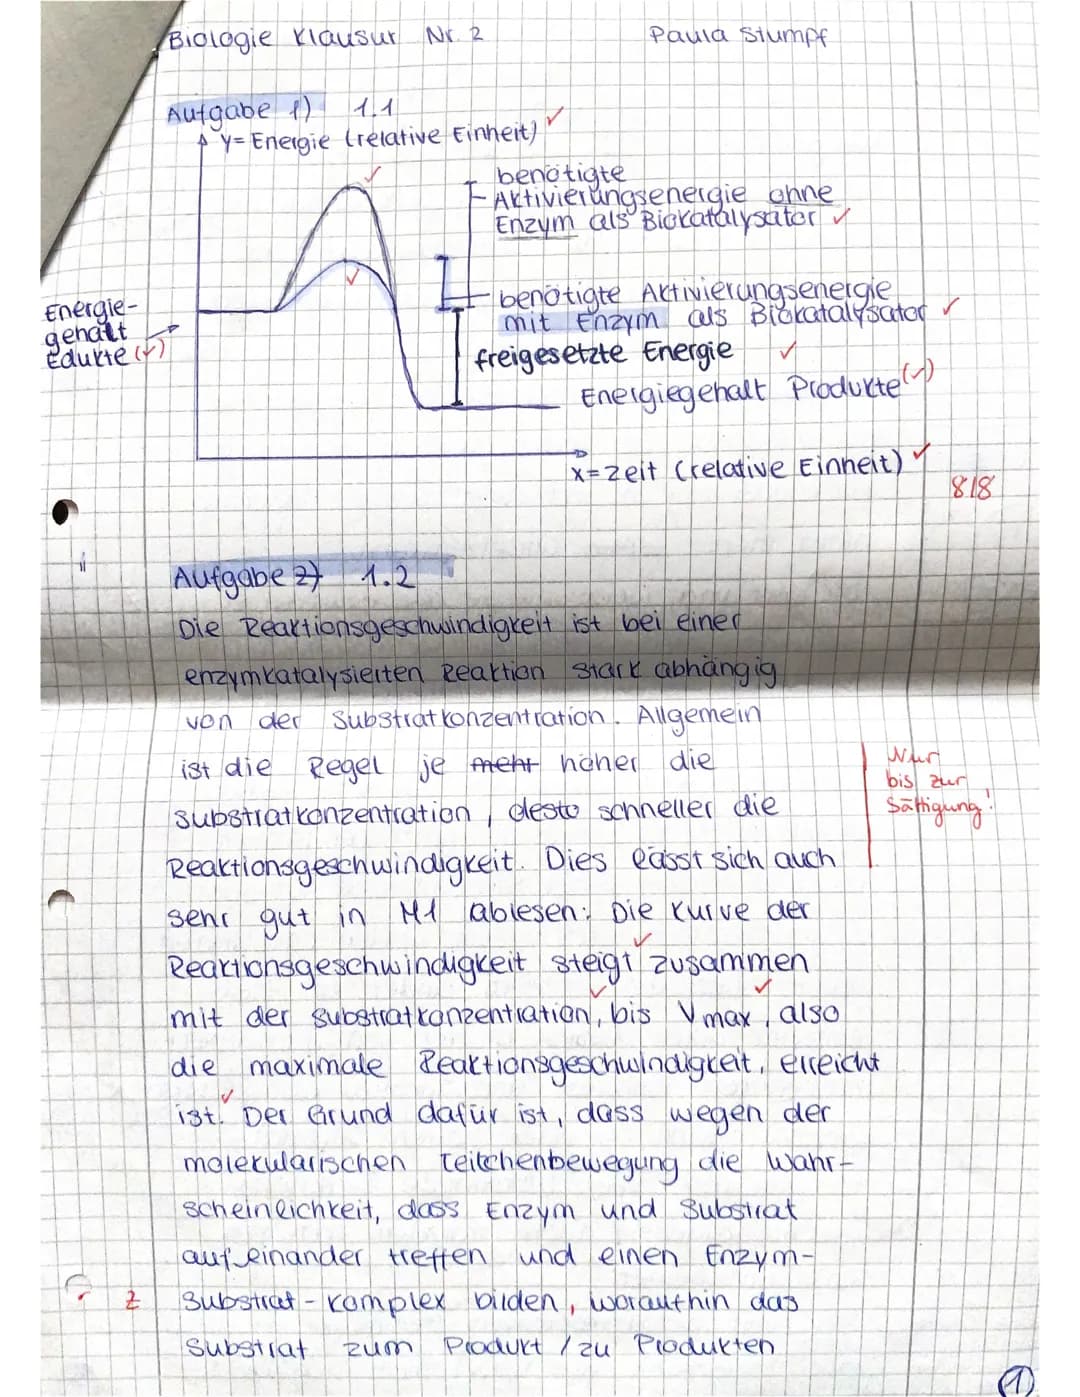 Biologie Klausur Nr. 2 Paula Stumpf
Aufgabe 1) 1.1
y = Energie (relative Einheit) ✓
benötigte
Aktivierungsenergie ohne
Enzym als Biokatalysator ✓
Energie-
gehalt
Edukte (✓)
benötigte Aktivierungsenergie
mit Enzym als Biokatalysator ✓
freigesetzte Energie ✓
Energiegehalt Produkte (✓)
x = Zeit (relative Einheit) ✓
8/8
Aufgabe 2) 1.2
Die Reaktionsgeschwindigkeit ist bei einer
enzymkatalysierten Reaktion stark abhängig
von der Substratkonzentration. Allgemein
ist die Regel je mehr höher die
Substratkonzentration, desto schneller die
Reaktionsgeschwindigkeit. Dies lässt sich auch
sehr gut in M1 ablesen: Die Kurve der
Reaktionsgeschwindigkeit steigt zusammen
mit der Substratkonzentration, bis Vmax, also
die maximale Reaktionsgeschwindigkeit, erreicht
ist. Der Grund dafür ist, dass wegen der
molekularischen Teilchenbewegung die Wahr-
scheinlichkeit, dass Enzym und Substrat
aufeinander treffen und einen Enzym-
Substrat-Komplex bilden, woraufhin das
Substrat zum Produkt / zu Produkten
Nur
bis zur
Sättigung!
Z
1